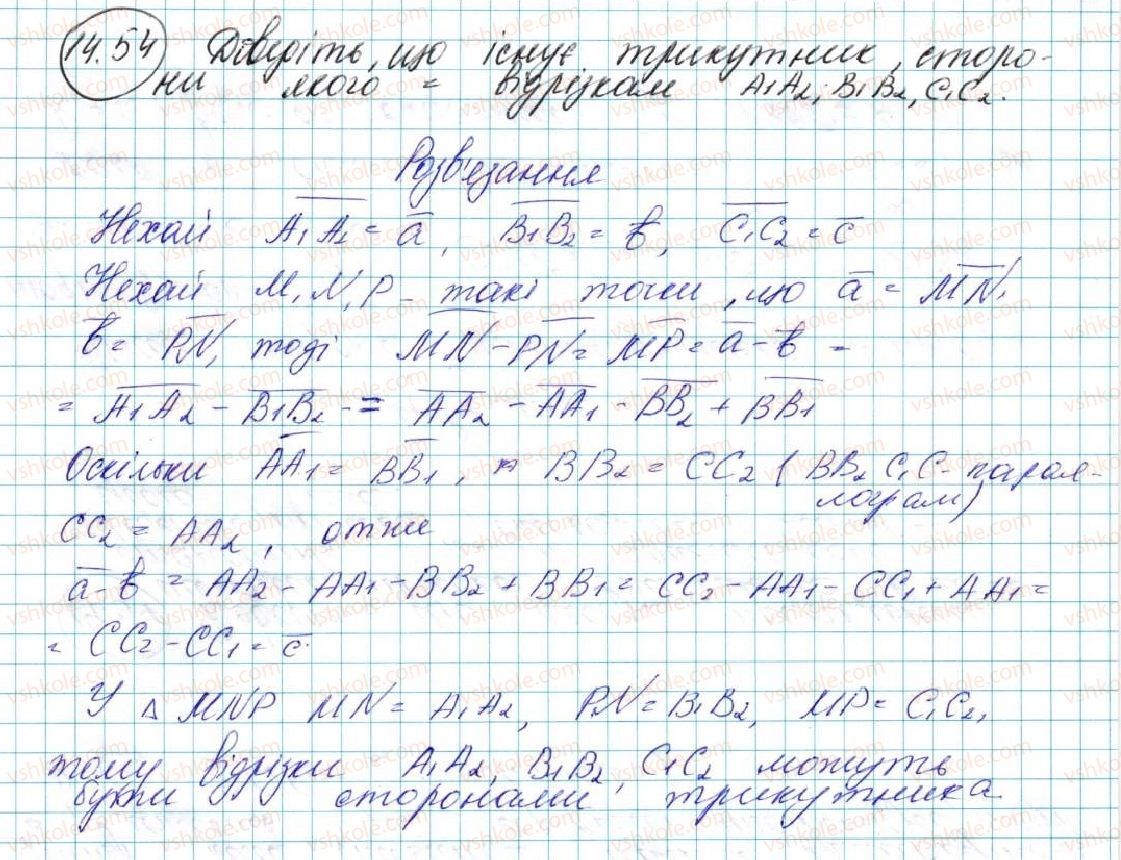 14.54 Доведіть, що існує трикутник, сторо-
ни якого = відрізкам A₁A₂, B₁B₂, C₁C₂.
Розв'язання
Нехай A₁A₂ = a, B₁B₂ = b, C₁C₂ = c
Нехай M, N, P - такі точки, що a = MN,
b = PN, тоді MN - PN = MP = a - b =
= A₁A₂ - B₁B₂ = AA₂ - AA₁ - BB₂ + BB₁
Оскільки AA₁ = BB₁, BB₂ = CC₂ (BB₂C₁C - парал-
лограм)
CC₂ = AA₂, отже
a - b = AA₂ - AA₁ - BB₂ + BB₁ = CC₂ - AA₁ - CC₁ + AA₁ =
= CC₂ - CC₁ = c.
У △ MNP MN = A₁A₂, PN = B₁B₂, MP = C₁C₂,
тому відрізки A₁A₂, B₁B₂, C₁C₂ можуть
бути сторонами трикутника.